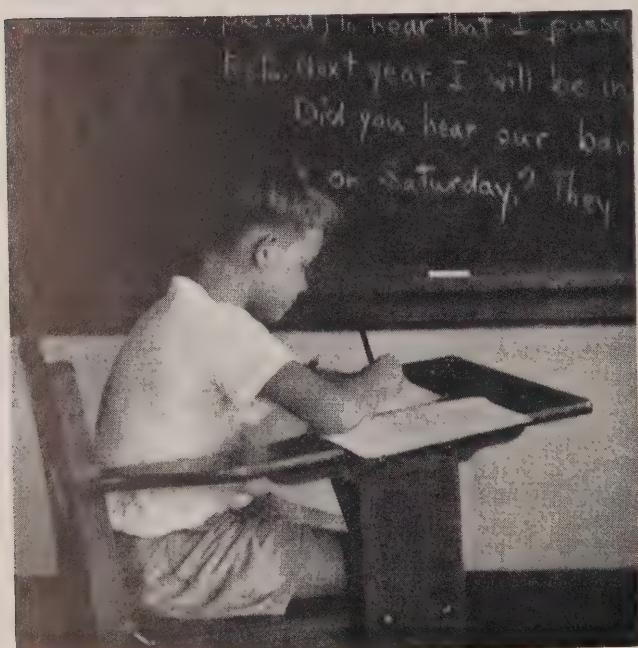 pleased) to hear that I passe
Next year I will be in
Did you hear our ban
on Saturday? They